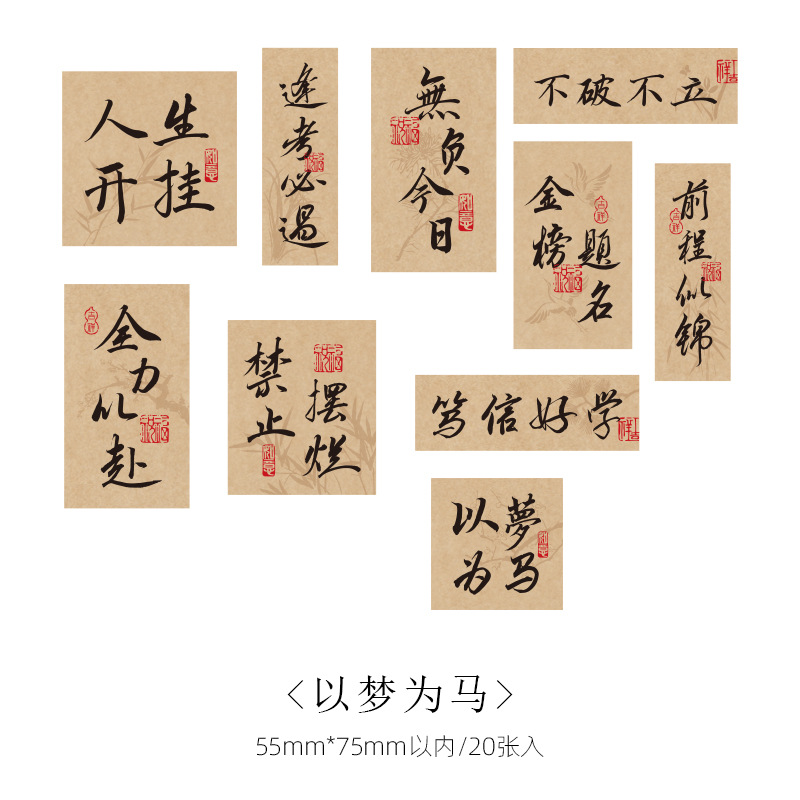 人生
开挂
逢考必過
無负
今日
不破不立
金榜
题名
前程似锦
全力
以赴
禁止
摆烂
笃信好学
以夢
为马
〈以梦为马〉
55mm*75mm以内/20张入